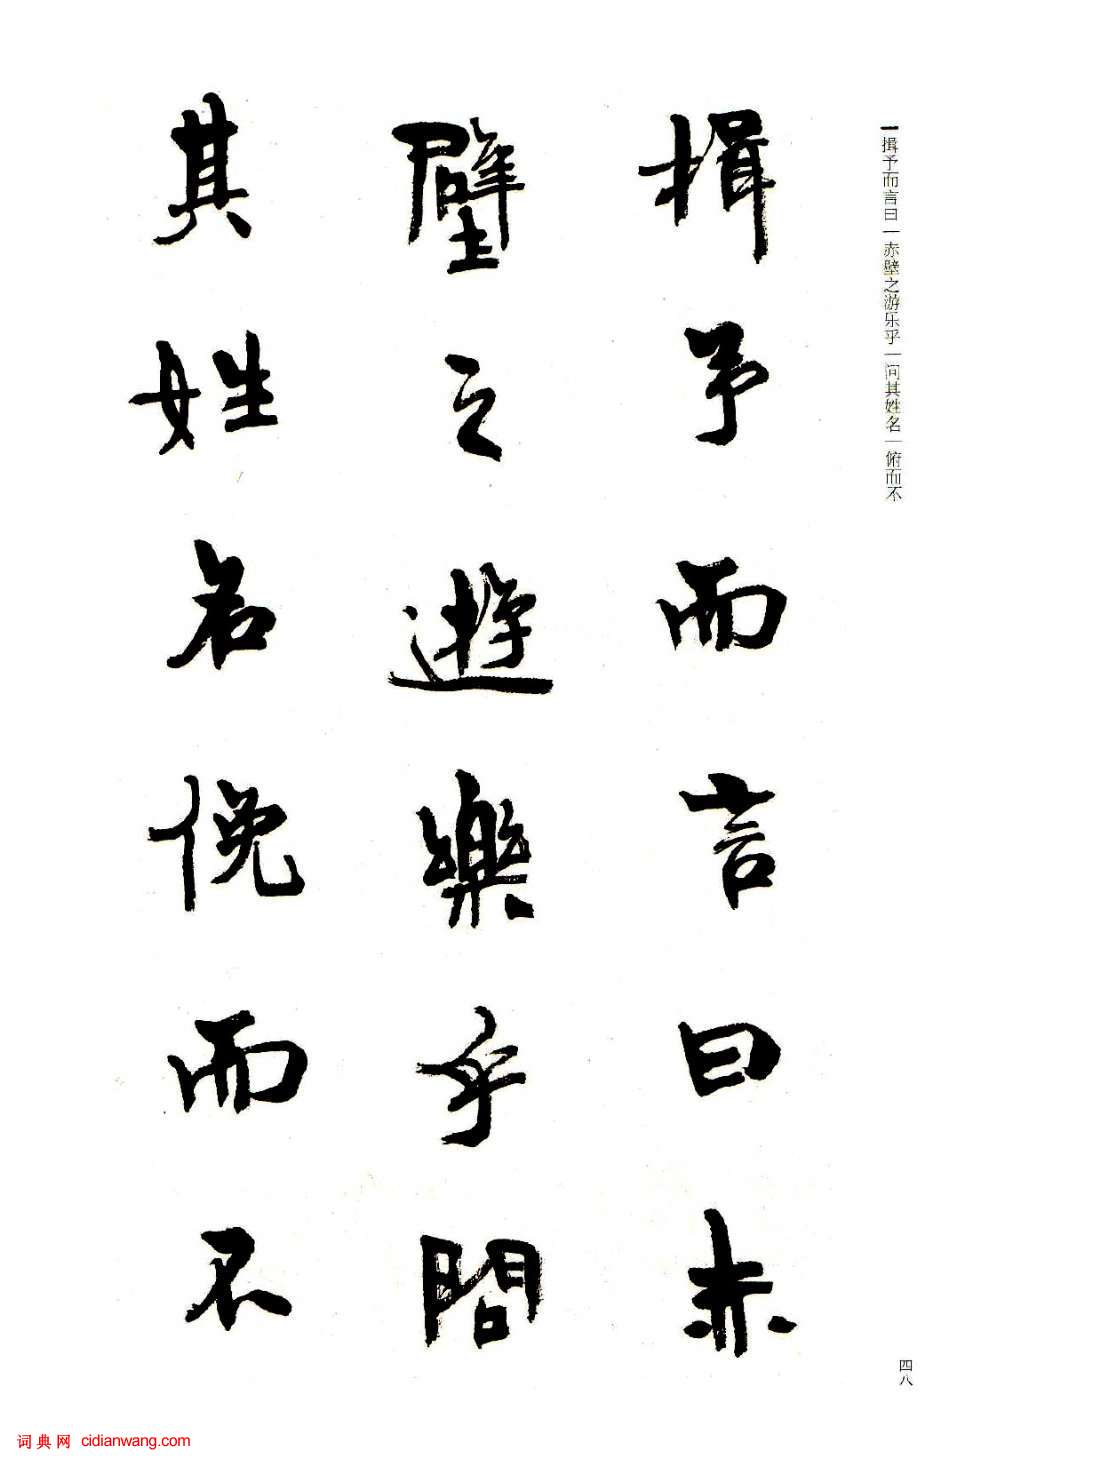 一揖予而言曰一赤壁之游乐乎一问其姓名一俯而不
揖予而言曰赤
壁之遊樂乎問
其姓名俛而不
四八
词典网 cidianwang.com